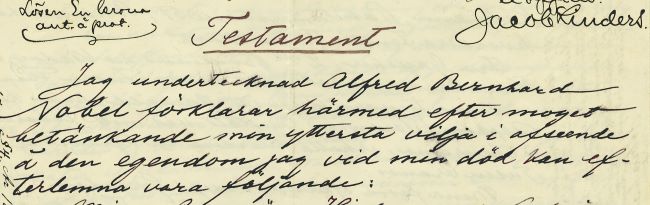 Lösen En krona
ant. å prot.
Jacob Kinders.
Testament
Jag undertecknad Alfred Bernhard
Nobel förklarar härmed efter moget
betänkande min yttersta vilja i afseende
å den egendom jag vid min död kan ef-
terlemna vara följande: